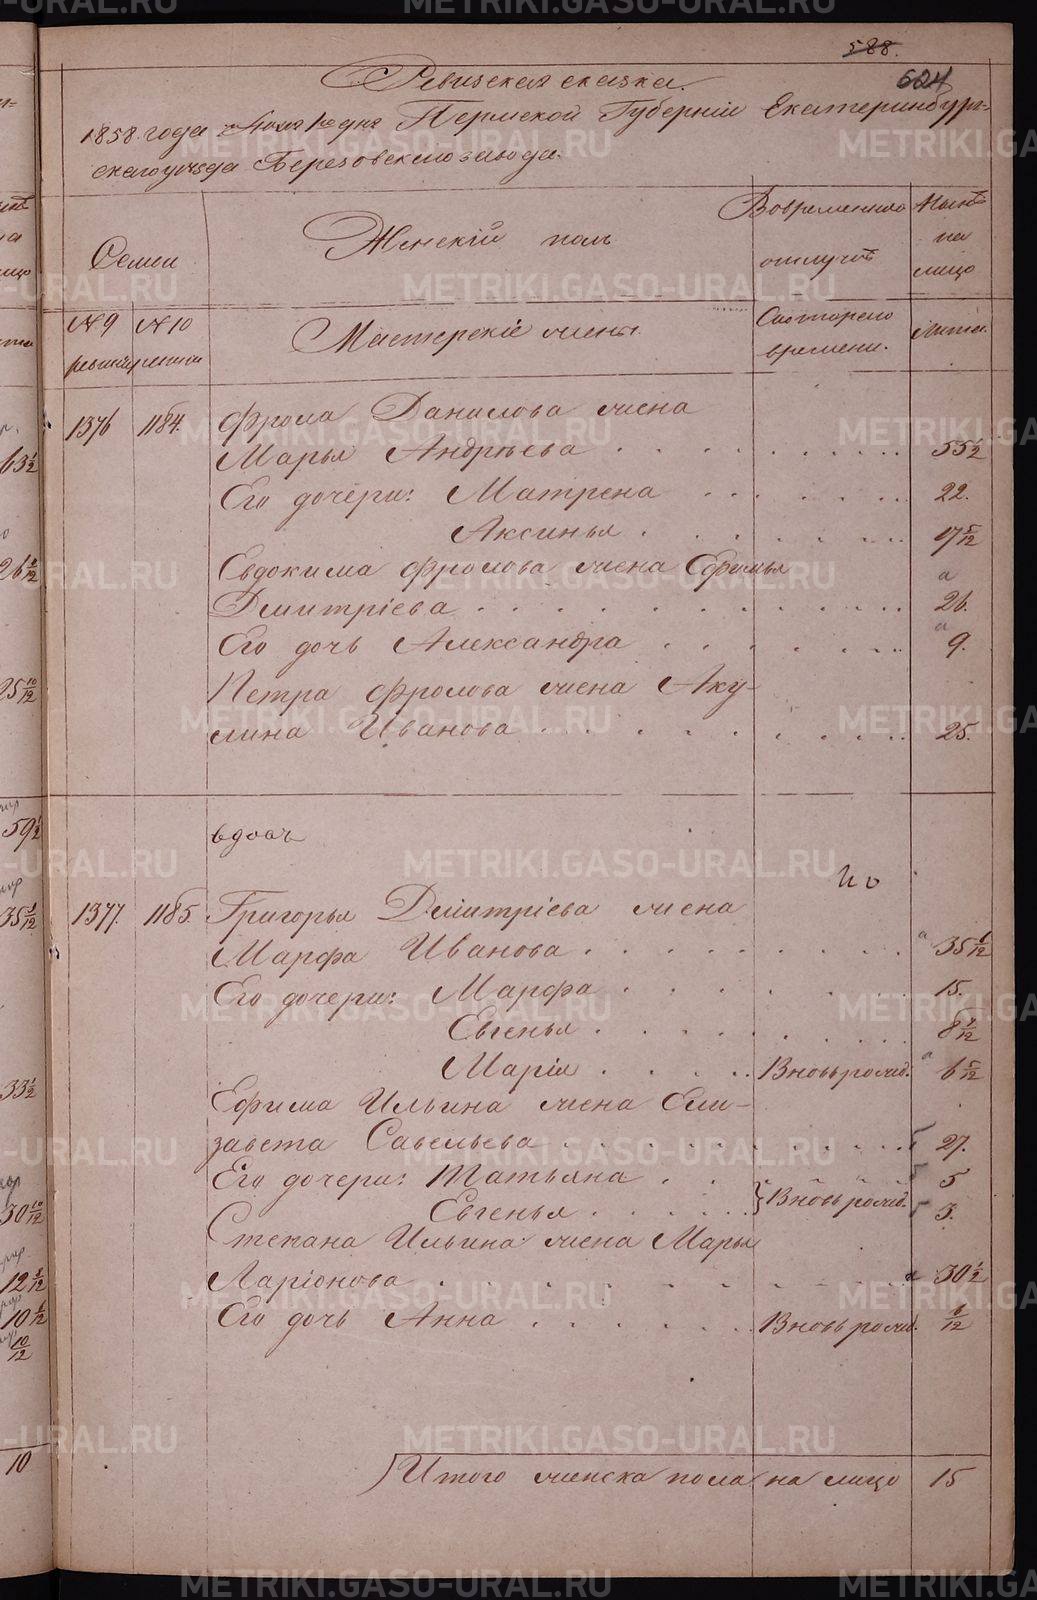 588.
624
Ревизская сказка.
1858. года Июля 1го дня Пермской Губерніи Екатеринбург-
скаго уѣзда Березовскаго завода.
Семьи
Женскій полъ
Во временной отлучкѣ
Нынѣ на лицо
№ 9 ревизіи
№ 10 ревизіи
Мастерскіе жены.
Съ котораго времени.
Лѣта.
1376 1184. Фрола Данилова жена
Марья Андрѣева . . . . . . . . 55 1/2
Его дочери: Матрена . . . . . 22.
Аксинья . . . . . . 17 5/12
Евдокима Фролова жена Ефимья
Дмитріева . . . . . . . . . . 26.
Его дочь Александра . . . . . . 9.
Петра Фролова жена Аку-
лина Иванова . . . . . . . . . 25.
вдовъ
1377. 1185. Григорья Дмитріева жена
Марфа Иванова . . . . . . . . 35
Его дочери: Марфа . . . . . . . 15.
Евгенья . . . . . . . 8
Марія . . . . . Вновь рожд. 6 5/12
Ефима Ильина жена Ели-
завета Савельева . . . . . . . . 27.
Его дочери: Татьяна . . . 5
Евгенья . . . . . } Вновь рожд. 3.
Степана Ильина жена Марья
Ларіонова . . . . . . . . . . . 30 1/2
Его дочь Анна . . . . . . Вновь рожд. 1/12
Итого женска пола на лицо 15
METRIKI.GASO-URAL.RU